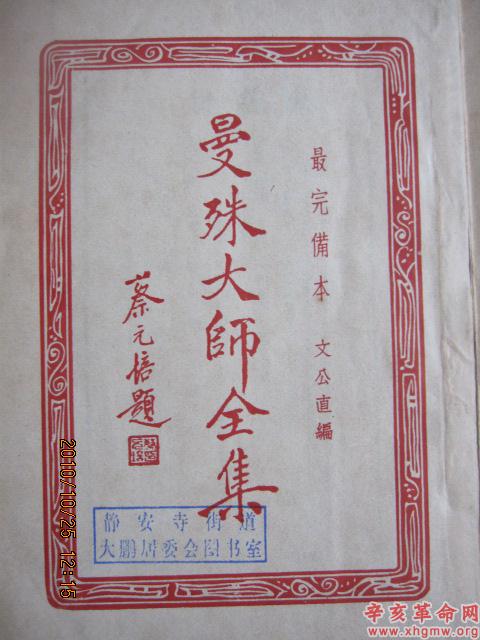 最完備本 文公直編
曼殊大師全集
蔡元培題
静安寺街道
大鹏居委会图书室
2010/10/25 12:15
辛亥革命网
www.xhgmw.org